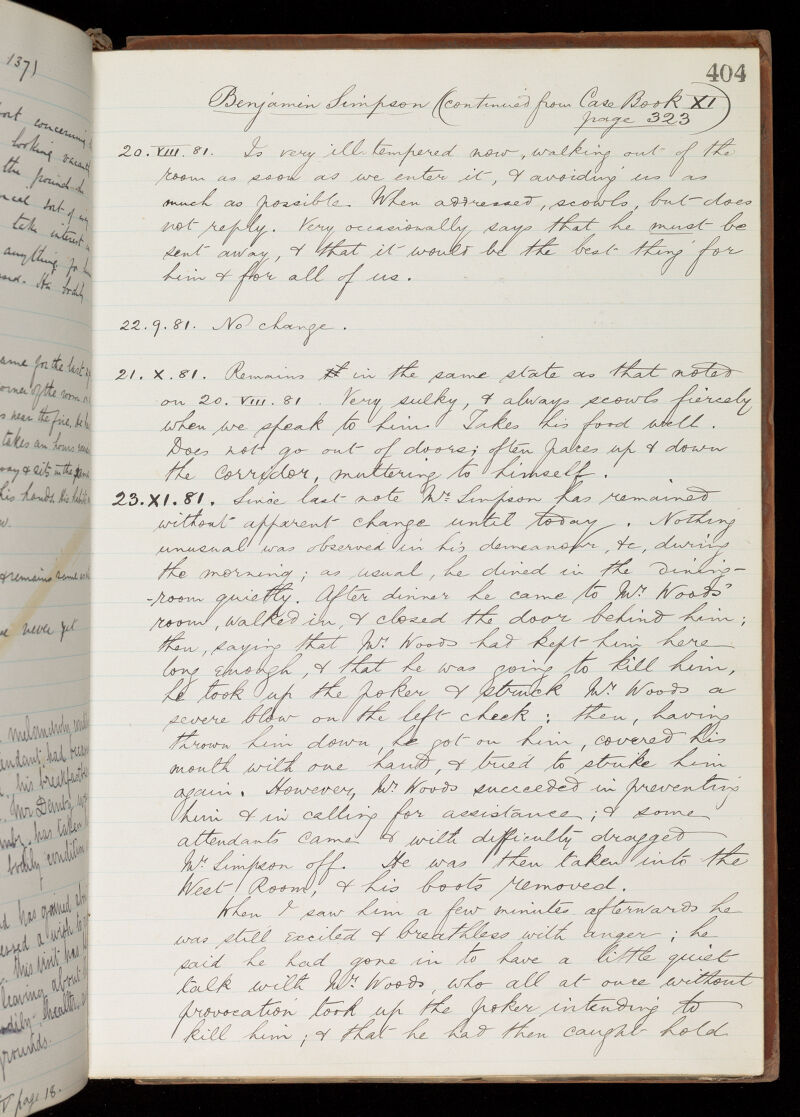 1371
404
Benjamin Simpson (continued from Case Book XI
page 323)
20.VIII.81. Is very ill-tempered now, walking out of the
room as soon as we enter it, & avoiding us as
much as possible. When addressed, scowls, but does
not reply. Very occasionally says that he must be
sent away, & that it would be the best thing for
him & for all of us.
22.9.81. No change.
21.X.81. Remains in the same state as that noted
on 20.VIII.81. Very sulky, & always scowls fiercely
when we speak to him. Takes his food well.
Does not go out of doors; often paces up & down
the corridor, muttering to himself.
23.XI.81. Since last note Mr. Simpson has remained
without apparent change until today. Nothing
unusual was observed in his demeanour, &c, during
the morning; as usual, he dined in the Dining-
-room quietly. After dinner he came to Mr. Woods'
room, walked in, & closed the door behind him;
then, saying that Mr. Woods had kept him here
long enough, & that he was going to kill him,
he took up the poker & struck Mr. Woods a
severe blow on the left cheek; then, having
thrown him down, he got on him, covered his
mouth with one hand, & tried to strike him
again. However, Mr. Woods succeeded in preventing
him & in calling for assistance; & some
attendants came & with difficulty dragged
Mr. Simpson off. He was then taken into the
West Room, & his boots removed.
When I saw him a few minutes afterwards he
was still excited & breathless with anger; he
said he had gone in to have a little quiet
talk with Mr. Woods, who all at once without
provocation took up the poker intending to
kill him; & that he had then caught hold
concerning
looking
the
sort of
take interest
anything for
bodily
same for the last
corner of the room
near the fire, he
takes an hours
& sits in the
his hands. His
& remains same
never yet
melancholy
attendant had
his breakfast
Mr Denby
has taken
bodily condition
has gained
a wish to
this visit has
leaving about
bodily health
grounds.
page 18.